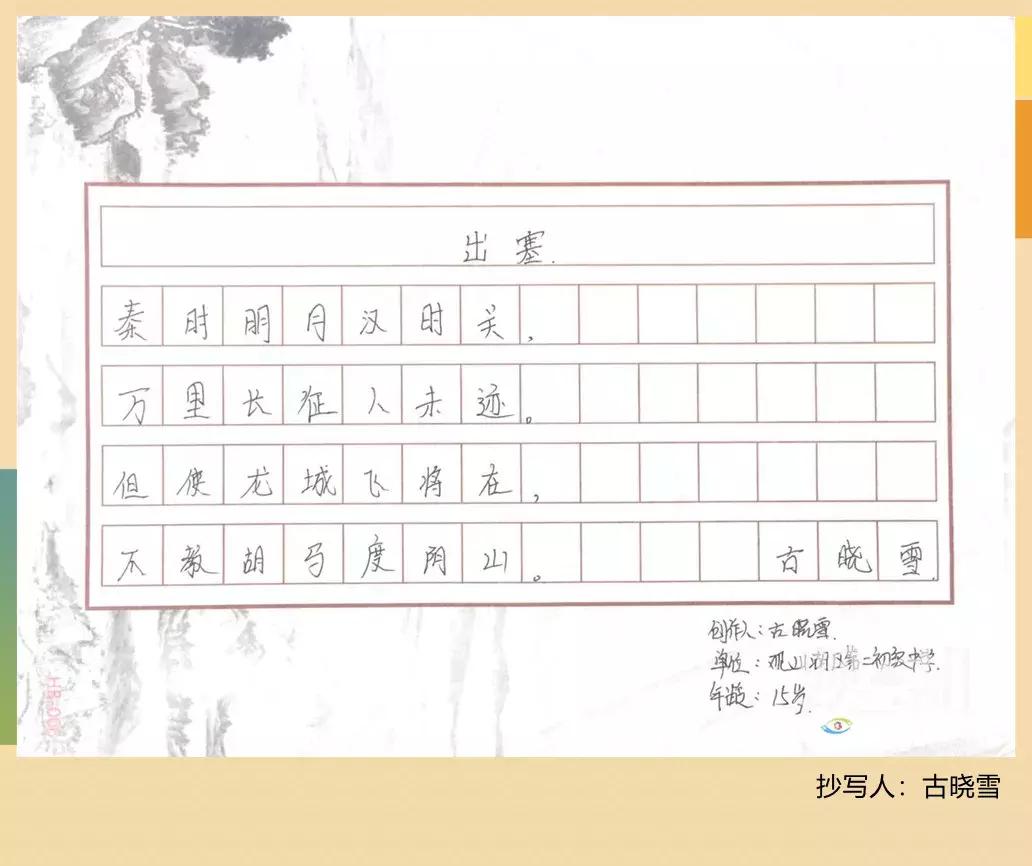 出塞.
秦时明月汉时关,
万里长征人未迹。
但使龙城飞将在,
不教胡马度阴山。 古晓雪.
创作人:古晓雪.
单位:观山湖区第二初级中学.
年龄:15岁.
HB-006
抄写人:古晓雪